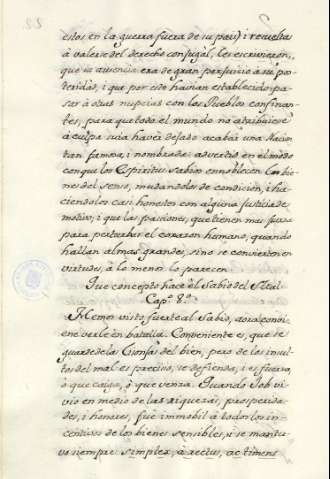 estos en la guerra fuera de su pais) i resueltas
à valerse del derecho conjugal, les escriviaron,
que su ausencia era de gran perjuicio à su pos-
teridad, i que por esto havian establecido pa-
sar à otras nupcias con los Pueblos confinan-
tes, para que todo el mundo no atribuiese
à culpa suia haver dejado acabar una Nacion
tan famosa, i nombrada: advertid en el modo
con que los Espiritus sabios ennoblecen los bie-
nes del senso, mudandolos de condicion, i ha-
ciendolos casi honestos con alguna justicia de
motivo; i que las pasiones, que tienen mas fuerza
para perturbar el corazon humano, quando
hallan almas grandes, sino se convierten en
virtudes, à lo menos lo parecen
Que concepto hace el Sabio del Mal
Cap.º 8.º
Hemos visto fuerte al Sabio, aora convie-
ne verle en batalla. Conveniente es, que se
guarde de las lisonjas del bien, pero de los insul-
tos del mal es preciso, se defienda, i es fuerza,
ò que caiga, ò que venza. Quando Job vi-
vio en medio de las riquezas, prosperida-
des, i honores, fue immobil à todos los in-
centivos de los bienes sensibles, i se mantu-
vo siempre simplex, à rectus, ac timens